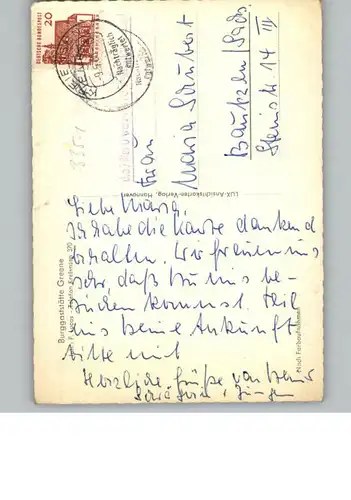 DEUTSCHE BUNDESPOST
20
Nachträglich
entwertet
3351
Frau
Maria Schubert
Bautzen/Sachs.
Steinstr. 14 III
LUX-Ansichtskarten-Verlag, Hannover
Burggaststätte Greene
Nach Farbaufnahmen
Liebe Maria,
Ich habe die Karte dankend
erhalten. Wir freuen uns
sehr, daß Du uns be-
suchen kommst. Teil
uns Deine Ankunft
bitte mit
Herzliche Grüße von Deiner